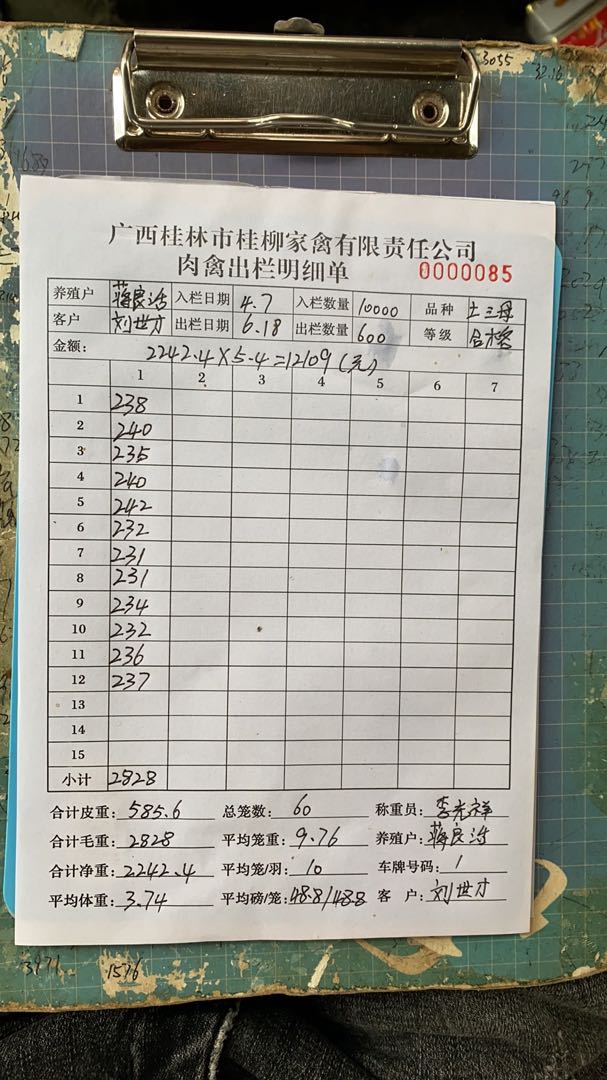 广西桂林市桂柳家禽有限责任公司
肉禽出栏明细单 0000085
养殖户 蒋良浩 入栏日期 4.7 入栏数量 10000 品种 土三母
客户 刘世才 出栏日期 6.18 出栏数量 600 等级 合格
金额: 2242.4×5.4=12109(元)
1 2 3 4 5 6 7
1 238
2 240
3 235
4 240
5 242
6 232
7 231
8 231
9 234
10 232
11 236
12 237
13
14
15
小计 2828
合计皮重: 585.6 总笼数: 60 称重员: 李光祥
合计毛重: 2828 平均笼重: 9.76 养殖户: 蒋良浩
合计净重: 2242.4 平均笼/羽: 10 车牌号码: 1
平均体重: 3.74 平均磅/笼: 48.8/48.8 客 户: 刘世才
3971 1576